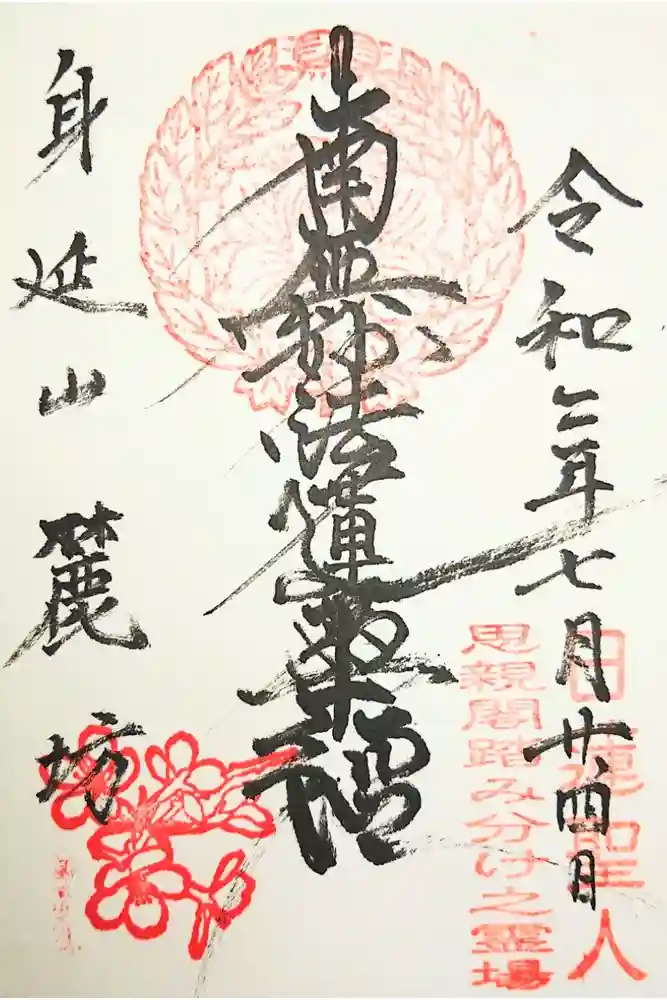 令和二年七月廿四日
日蓮聖人
思親閣踏み分け之霊場
南無妙法蓮華経
身延山麓坊